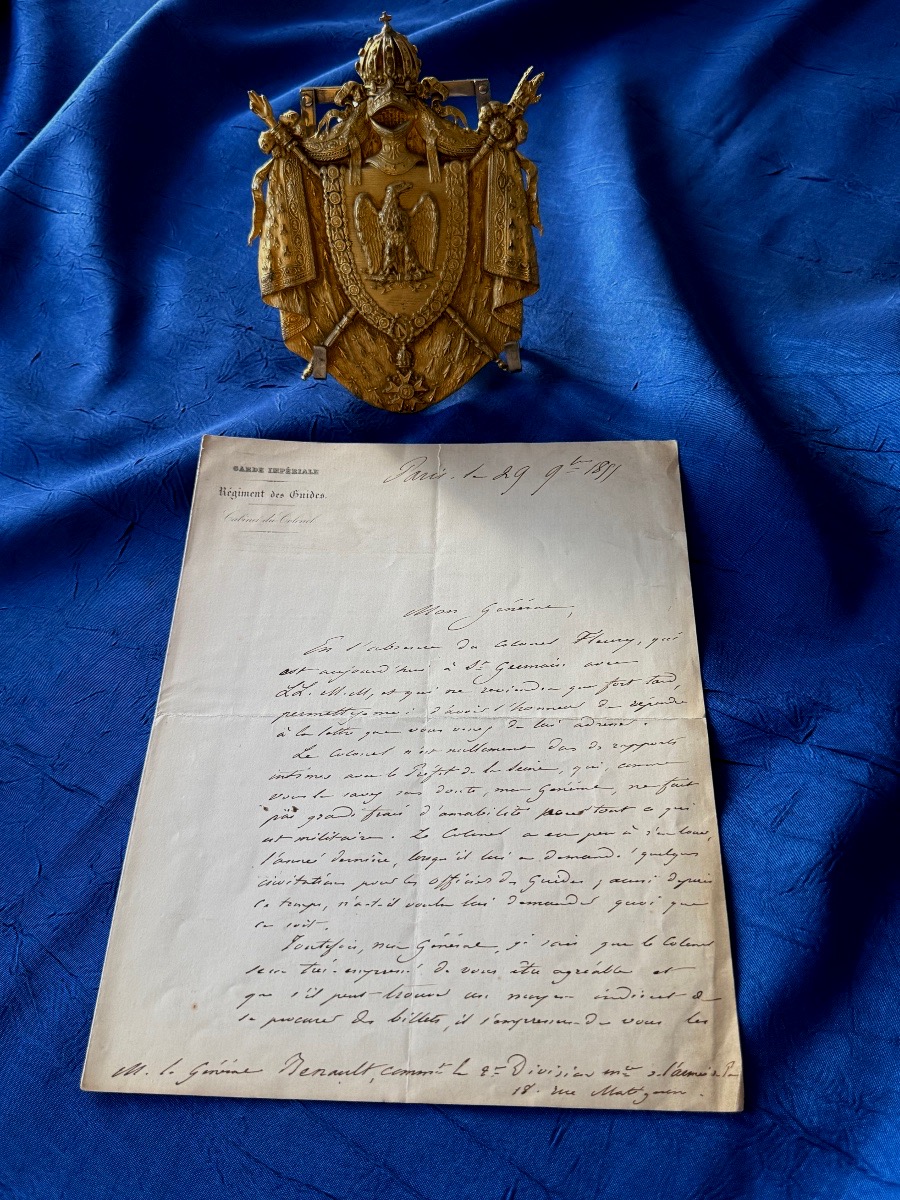 GARDE IMPÉRIALE
Régiment des Guides.
Cabinet du Colonel
Paris. le 29 9bre 1855
Mon Général,
En l'absence du Colonel Fleury, qui
est aujourd'hui à St. Germain avec
LL. M.M, et qui ne reviendra que fort tard,
permettez-moi d'avoir l'honneur de répondre
à la lettre que vous venez de lui adresser.
Le Colonel n'est nullement dans des rapports
intimes avec le Préfet de la Seine, qui, comme
vous le savez sans doute, mon Général, ne fait
pas grands frais d'amabilité pour tout ce qui
est militaire. Le Colonel a eu peu à s'en louer,
l'année dernière, lorsqu'il lui a demandé quelques
invitations pour les officiers des Guides ; aussi depuis
ce temps, n'a-t-il voulu lui demander quoi que
ce soit.
Toutefois, mon Général, je sais que le Colonel
sera très-empressé de vous être agréable et
que s'il peut trouver un moyen indirect de
se procurer des billets, il s'empressera de vous les
M. le Général Renault, commt. la 2me Division mre de l'armée de
18. rue Matignon.